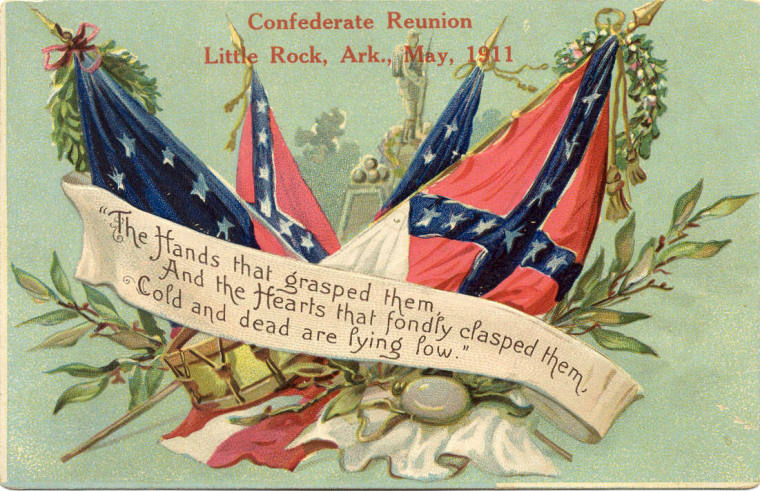 Confederate Reunion
Little Rock, Ark., May, 1911
"The Hands that grasped them,
And the Hearts that fondly clasped them,
Cold and dead are lying low."